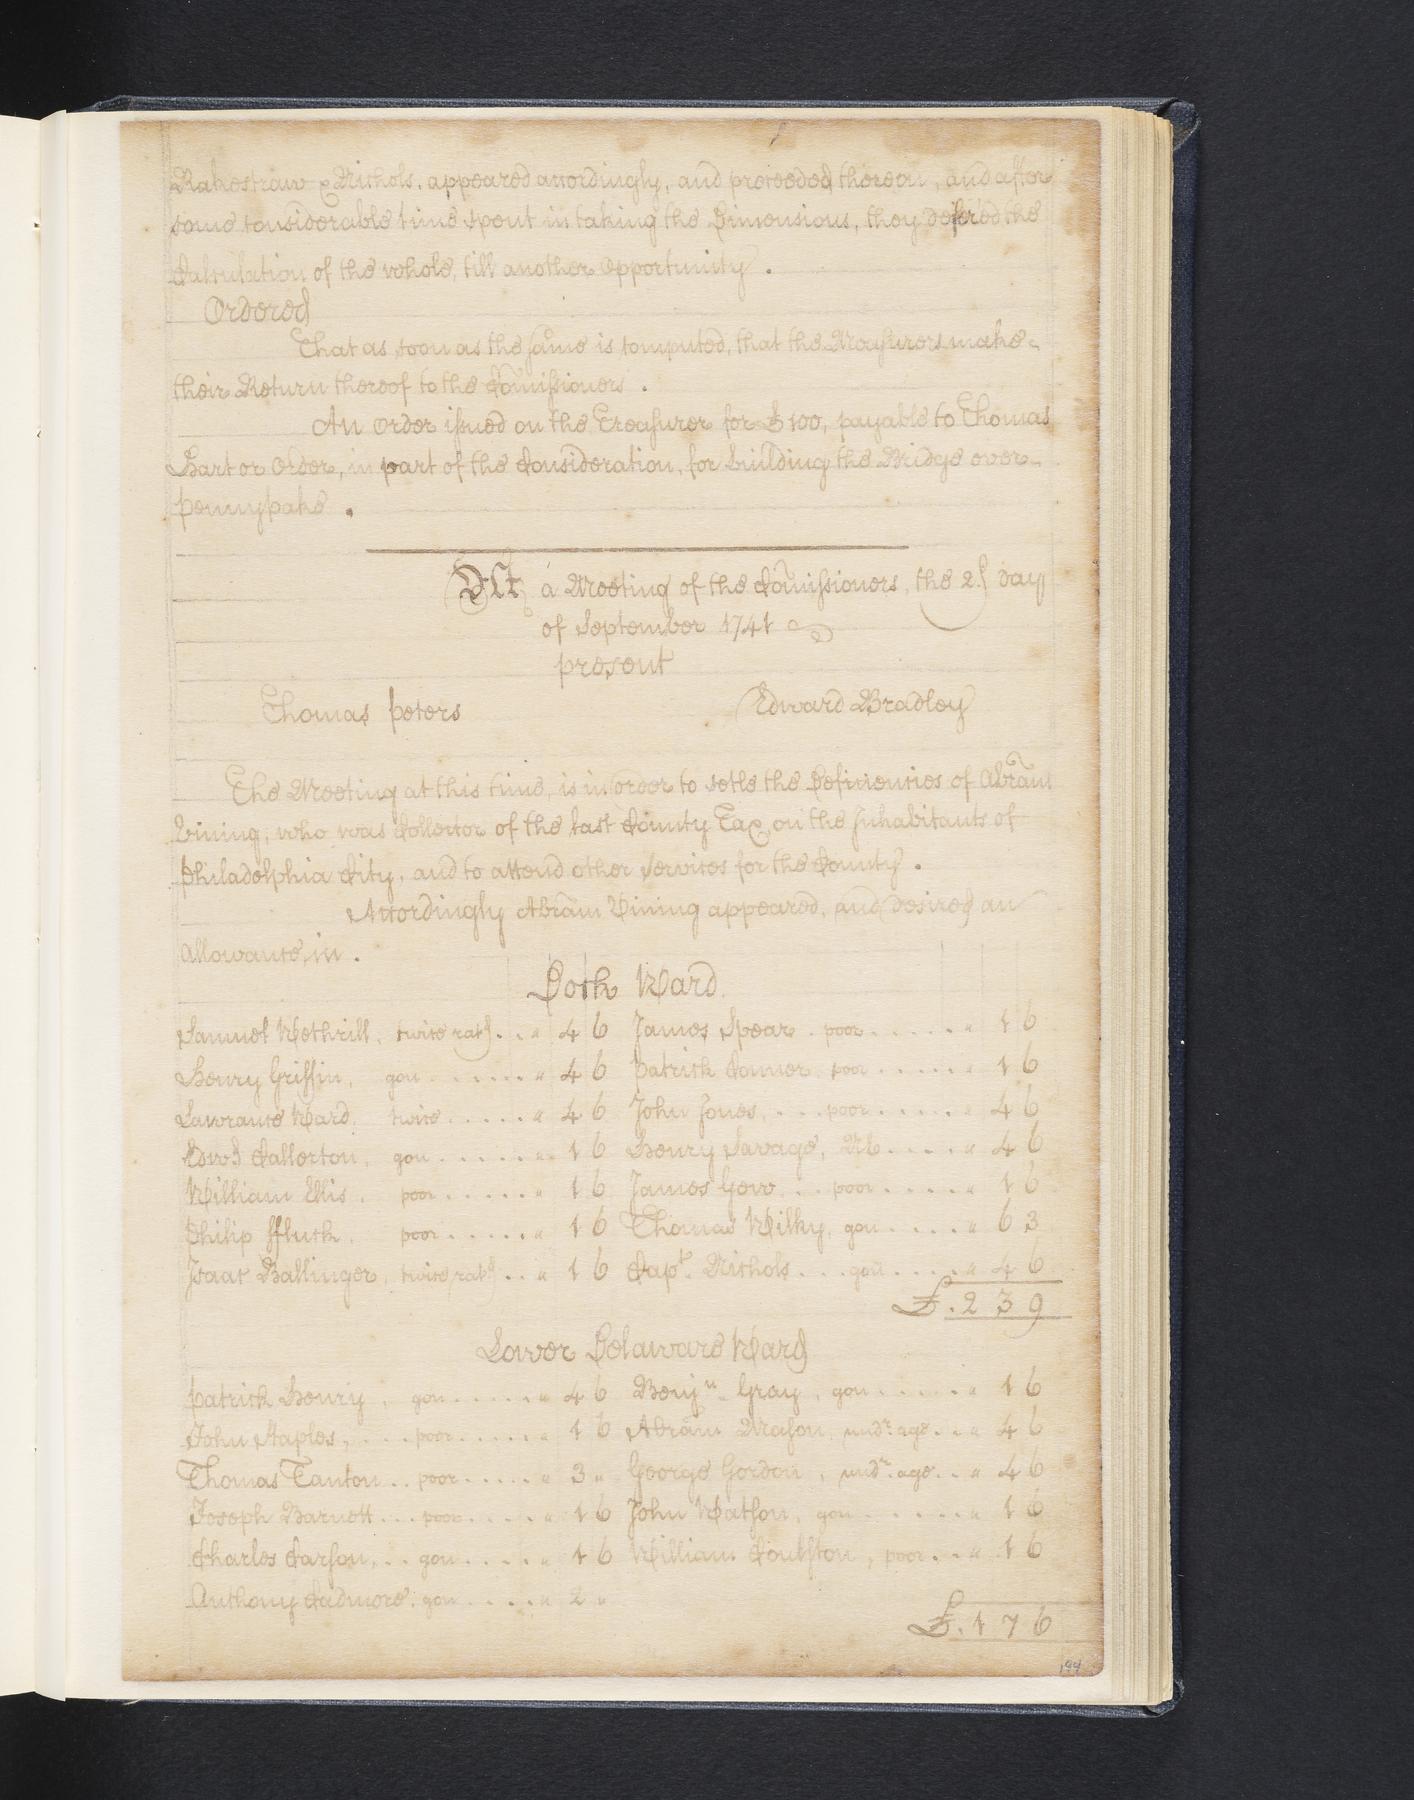 Rakestraw & Nichols, appeared accordingly, and proceeded thereon, and after
some considerable time spent in taking the Dimensions, they defer'd the
Calculation of the whole, till another Opportunity.
Ordered
That as soon as the same is computed, that the Measurers make
their Return thereof to the Com̃issioners.
An Order issued on the Treasurer for £100, payable to Thomas
Hart or Order, in part of the Consideration, for building the Bridge over
Pennypake.
At a Meeting of the Com̃issioners, the 2d day
of September 1741
present
Thomas Peters Edward Bradley
The Meeting at this time, is in order to setle the Deficiencies of Abrãm
Vining, who was Collector of the last County Tax, on the Inhabitants of
Philadelphia City, and to attend other Services for the County.
Accordingly Abrãm Vining appeared, and desired an
allowance, in.
Dock Ward
Samuel Wethrill, twice ratd .. " 4 6 James Spear . poor ...... " 1 6
Henry Griffin, gon ...... " 4 6 Patrick Conner poor ..... " 1 6
Lawrance Ward, twice ..... " 4 6 John Jones, ... poor ..... " 4 6
Edwd Callerton, gon ...... " 1 6 Henry Savage, .... " 4 6
William Ellis . poor ..... " 1 6 James Gow .. poor ..... " 1 6
Philip ffluck, poor ..... " 1 6 Thomas Wilky, gon .... " 6 3
Isaac Ballinger, twice ratd .. " 1 6 Capt. Nichols ... gon .... " 4 6
£. 2 3 9
Lower Delaware Ward
Patrick Henry, gon ..... " 4 6 Benjn. Gray, gon ..... " 1 6
John Staples, ... poor ..... " 1 6 Abrãm Mason, undr. age .. " 4 6
Thomas Tanton .. poor ..... " 3 " George Gordon, undr. age .. " 4 6
Joseph Barnett ... poor .... " 1 6 John Watson, gon ...... " 1 6
Charles Carson, .. gon .... " 1 6 William Coulston, poor .. " 1 6
Anthony Cadmore, gon .... " 2 "
£. 1 7 6
194